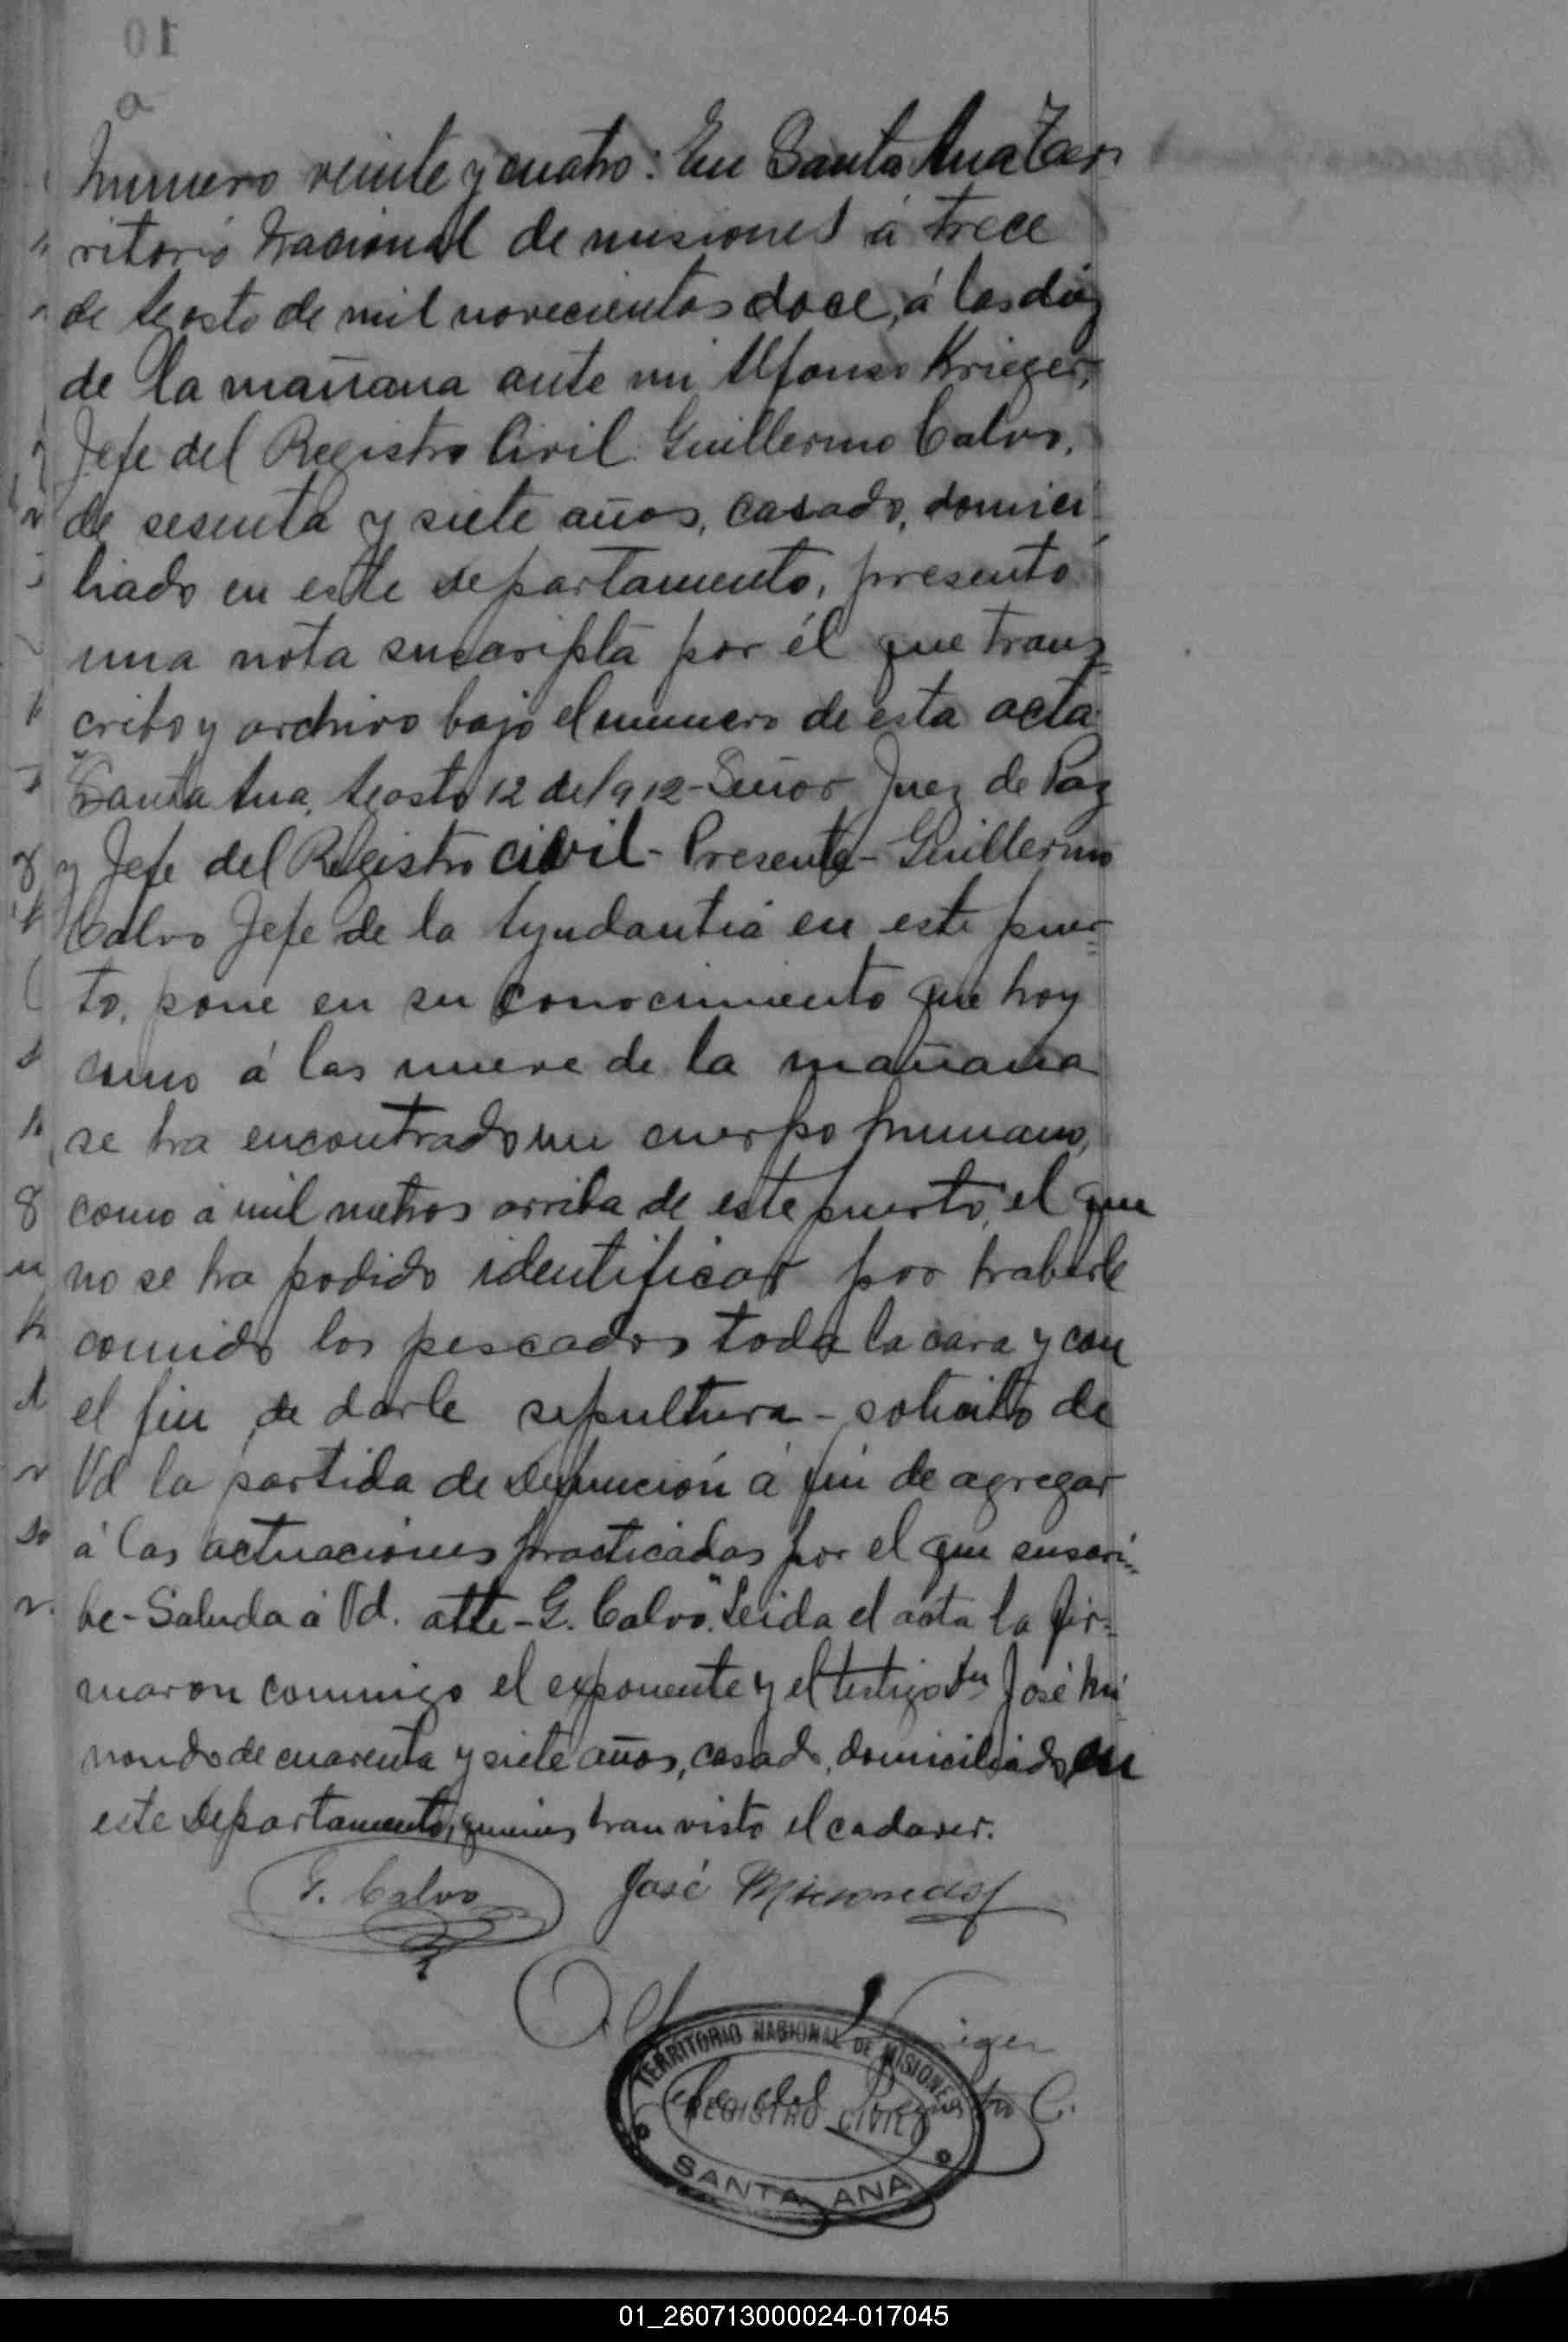 10
Numero veinte y cuatro: En Santa Ana Ter
ritorio Nacional de misiones á trece
de Agosto de mil novecientos doce, á las diez
de la mañana ante mi Alfonso Krieger,
Jefe del Registro Civil. Guillermo Calvo,
de sesenta y siete años, casado, domici
liado en este departamento, presentó
una nota suscripta por él que trans
cribo y archivo bajo el numero de esta acta
"Santa Ana, Agosto 12 de 1912 - Señor Juez de Paz
y Jefe del Registro civil - Presente - Guillermo
Calvo Jefe de la Ayudantia en este puer
to, pone en su conocimiento que hoy
como á las nueve de la mañana
se ha encontrado un cuerpo humano,
como á mil metros arriba de este puerto, el que
no se ha podido identificar por haberle
comido los pescados toda la cara y con
el fin de darle sepultura - solicito de
Vd la partida de defunción á fin de agregar
á las actuaciones practicadas por el que suscri
be - Saluda á Vd. atte - G. Calvo". Leida el acta la fir
maron conmigo el exponente y el testigo Dn José Mi
nondo de cuarenta y siete años, casado, domiciliado en
este Departamento, quienes han visto el cadaver.
G. Calvo José Minondo
TERRITORIO NACIONAL DE MISIONES
Jefe del Registro C.
REGISTRO CIVIL
SANTA ANA
01_260713000024-017045